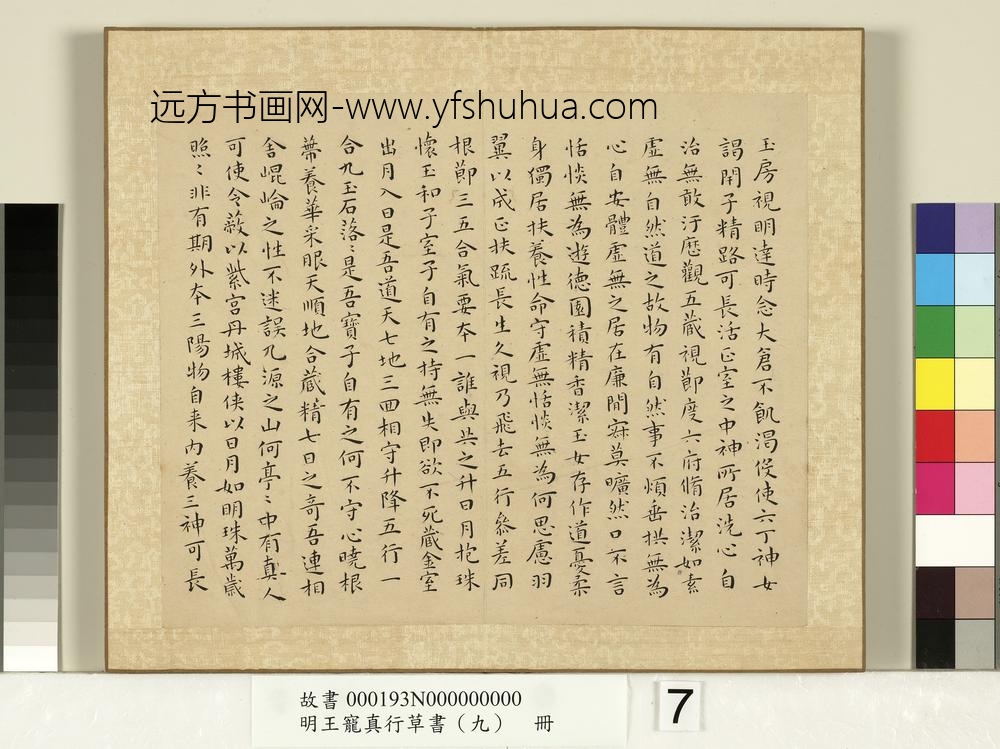 远方书画网-www.yfshuhua.com
玉房視明達時念大倉不飢渴役使六丁神女
謁閇子精路可長活正室之中神所居洗心自
治無敢汙歷觀五藏視節度六府脩治潔如素
虛無自然道之故物有自然事不煩垂拱無為
心自安體虛無之居在廉間寂莫曠然口不言
恬惔無為遊德園積精香潔玉女存作道憂柔
身獨居扶養性命守虛無恬惔無為何思慮羽
翼以成正扶疏長生久視乃飛去五行參差同
根節三五合氣要本一誰與共之升日月抱珠
懷玉和子室子自有之持無失即欲不死藏金室
出月入日是吾道天七地三回相守升降五行一
合九玉石落〻是吾寶子自有之何不守心曉根
蔕養華采眼天順地合藏精七日之奇吾連相
舍崐崘之性不迷誤九源之山何亭〻中有真人
可使令蔽以紫宮丹城樓俠以日月如明珠萬歲
照〻非有期外本三陽物自来內養三神可長
故書 000193N000000000
明王寵真行草書（九） 冊
7